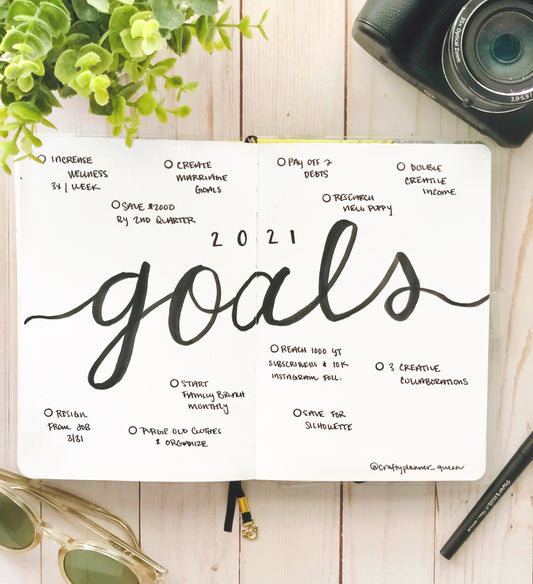 INCREASE
WELLNESS
3X / WEEK
CREATE
MARRIAGE
GOALS
SAVE $2000
BY 2ND QUARTER
PAY OFF 2
DEBTS
DOUBLE
CREATIVE
INCOME
RESEARCH
NEW PUPPY
2021
goals
REACH 1000 YT
SUBSCRIBERS & 10K
INSTAGRAM FOLL.
3 CREATIVE
COLLABORATIONS
START
FAMILY BRUNCH
MONTHLY
SAVE FOR
SILHOUETTE
RESIGN
FROM JOB
3/31
PURGE OLD CLOTHES
& ORGANIZE
@craftyplanner_queen
Optical Zoom